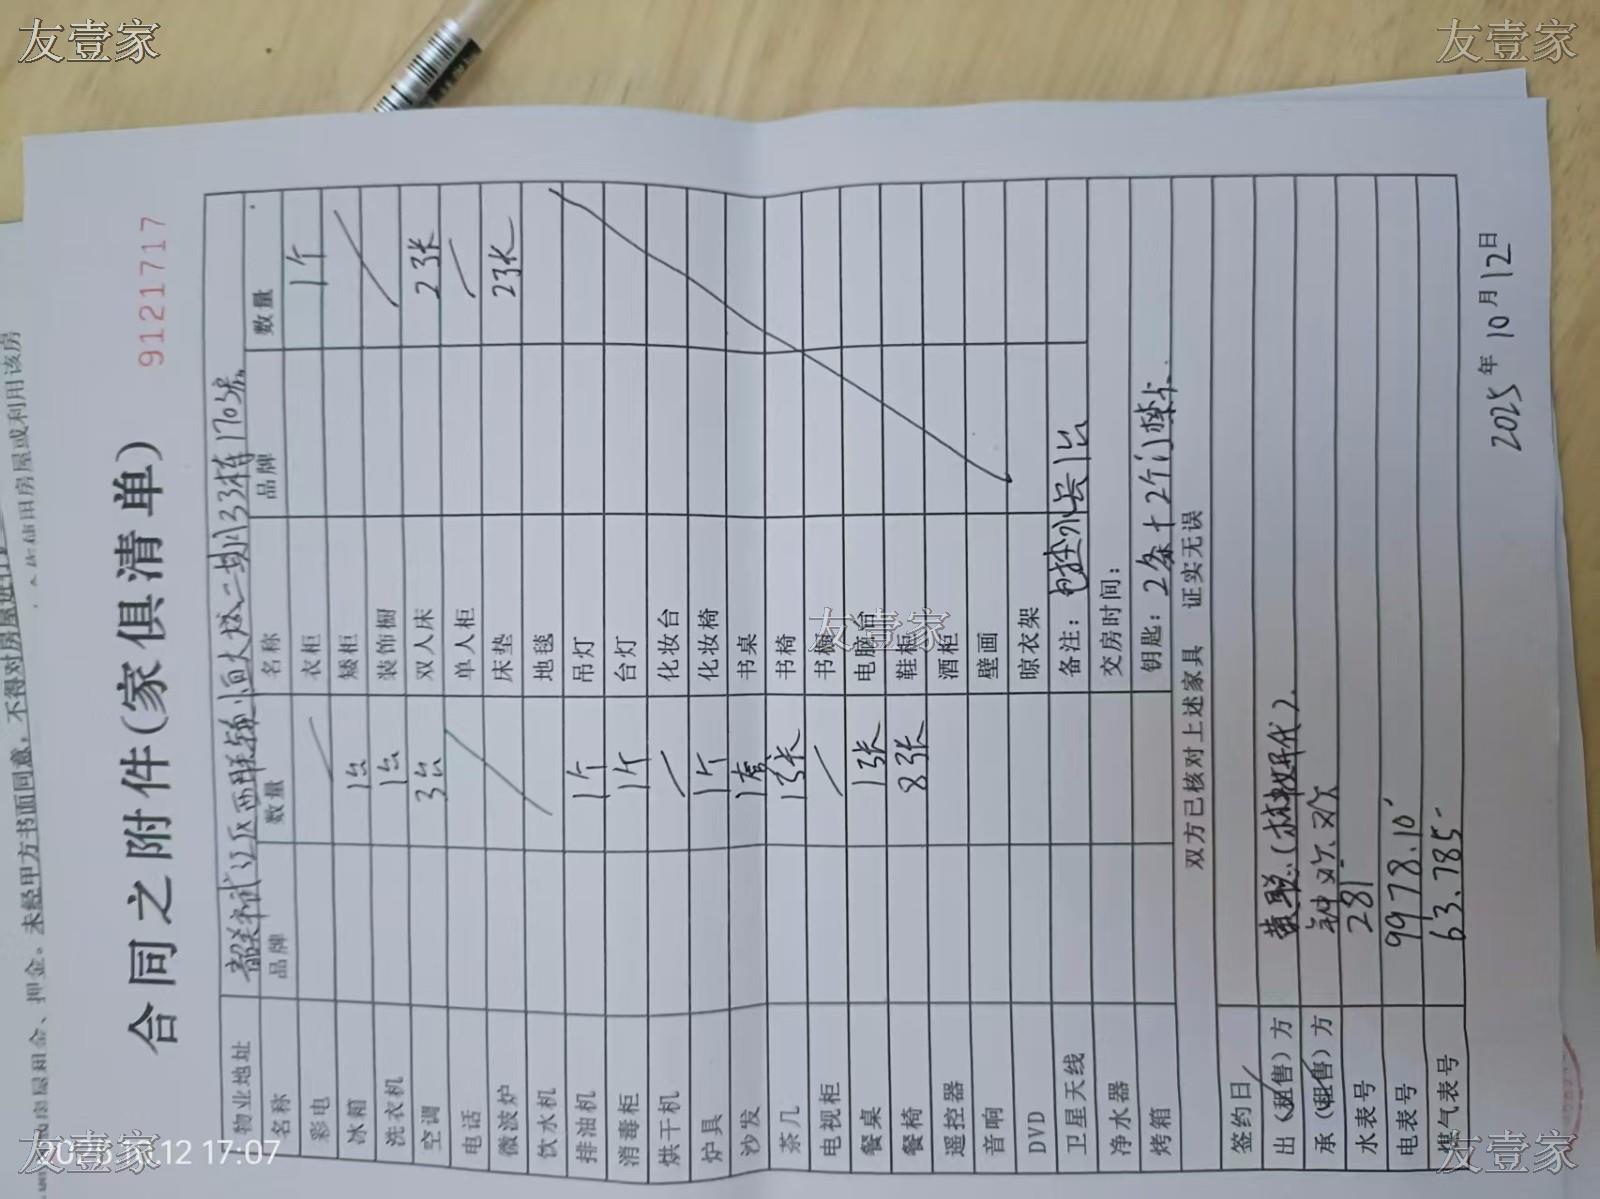 友壹家
友壹家
合同之附件(家俱清单)
9121717
物业地址 韶关市武江区西联镇恒大城二期133栋1703房
名称 品牌 数量 名称 品牌 数量
彩电 衣柜 1个
冰箱 1台 矮柜
洗衣机 1台 装饰橱
空调 3台 双人床 2张
电话 单人柜
微波炉 床垫 2张
饮水机 地毯
排油机 1个 吊灯
消毒柜 1个 台灯
烘干机 化妆台
炉具 1个 化妆椅
沙发 1套 书桌
茶几 1张 书椅
电视柜 书橱
餐桌 1张 电脑台
餐椅 8张 鞋柜
遥控器 酒柜
音响 壁画
DVD 晾衣架
卫星天线 备注: 1台
净水器 交房时间:
烤箱 钥匙: 2条+2个门禁卡.
双方已核对上述家具 证实无误
签约日
出(租售)方
承(租售)方
水表号 281
电表号 9978.10
煤气表号 63.785
2025年10月12日
未经甲方书面同意,不得对房屋进行
使用房屋或利用该房
屋租金、押金。
2025 10.12 17:07
友壹家
友壹家
友壹家